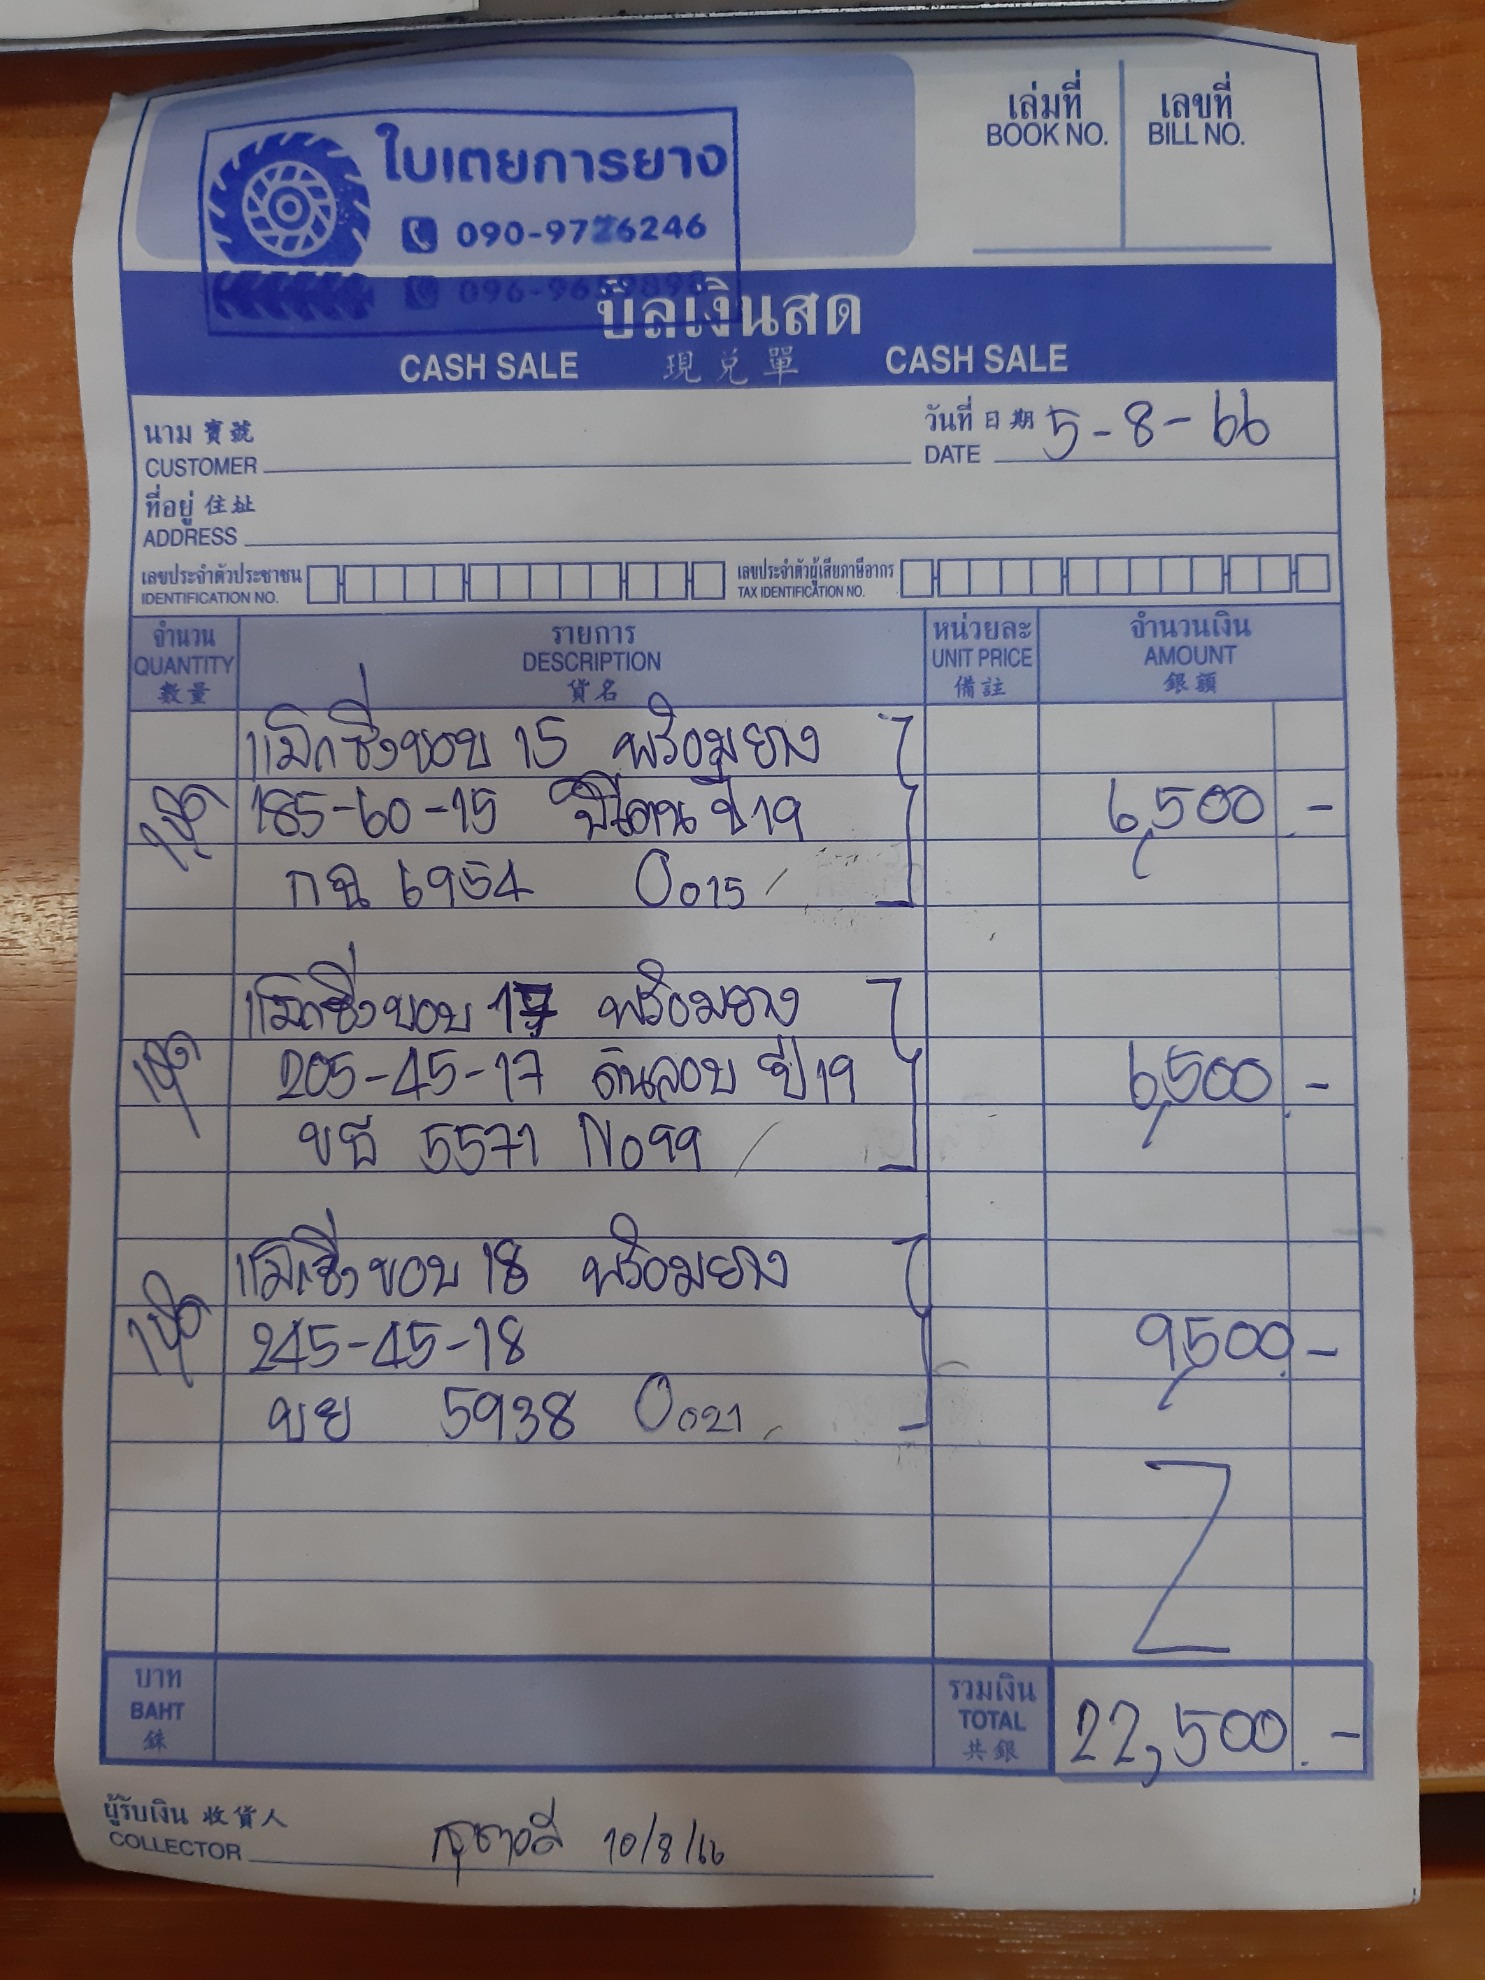 ใบเตยการยาง
090-9726246
เล่มที่
BOOK NO.
เลขที่
BILL NO.
บิลเงินสด
CASH SALE 現兌單 CASH SALE
นาม 寶號
CUSTOMER
วันที่ 日期 5-8-66
DATE
ที่อยู่ 住址
ADDRESS
เลขประจำตัวประชาชน
IDENTIFICATION NO.
เลขประจำตัวผู้เสียภาษีอากร
TAX IDENTIFICATION NO.
จำนวน
QUANTITY
數量
รายการ
DESCRIPTION
貨名
หน่วยละ
UNIT PRICE
備註
จำนวนเงิน
AMOUNT
銀額
แม็กซิ่งขอบ 15 พร้อมยาง
1ชุด 185-60-15 ปี 19 6,500.-
กฉ 6954 O015
แม็กซิ่งขอบ 17 พร้อมยาง
1ชุด 205-45-17 ดันลอบ ปี 19 6,500.-
5571 No99
แม็กซิ่งขอบ 18 พร้อมยาง
1ชุด 245-45-18 9,500.-
ขย 5938 O021
บาท
BAHT
銖
รวมเงิน
TOTAL
共銀
22,500.-
ผู้รับเงิน 收貨人
COLLECTOR
10/8/66